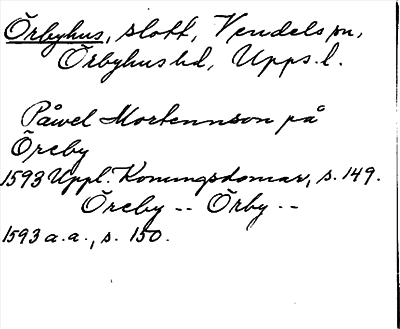 Örbyhus, slott, Vendels sn,
Örbyhus hd, Upps. l.
Påwel Mortennson på
Öreby
1593 Uppl. Konungsdomar, s. 149.
Öreby -- Örby --
1593 a.a., s. 150.